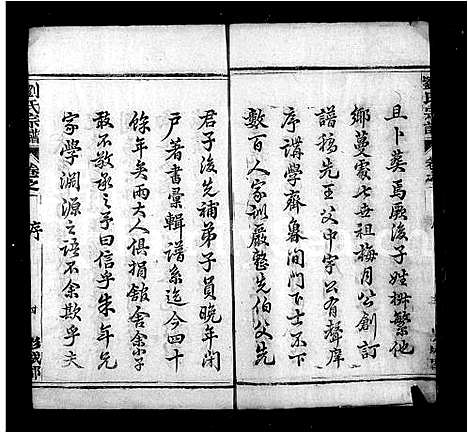 且卜葬焉厥後子姓椒繁他
鄉蔓處七世祖梅月公創訂
譜稿先王父申字公有聲庠
序講學齊魯間門下士不下
數百人家訓嚴整先伯父先
君子後先補弟子員晚年閉
戶著書彙輯譜系迄今四十
餘年矣兩大人俱捐館舍余小子
敢不敬承之予曰信乎朱年兄
家學淵源之語不余欺乎夫
劉氏宗譜
卷之
序
四
彭城郡